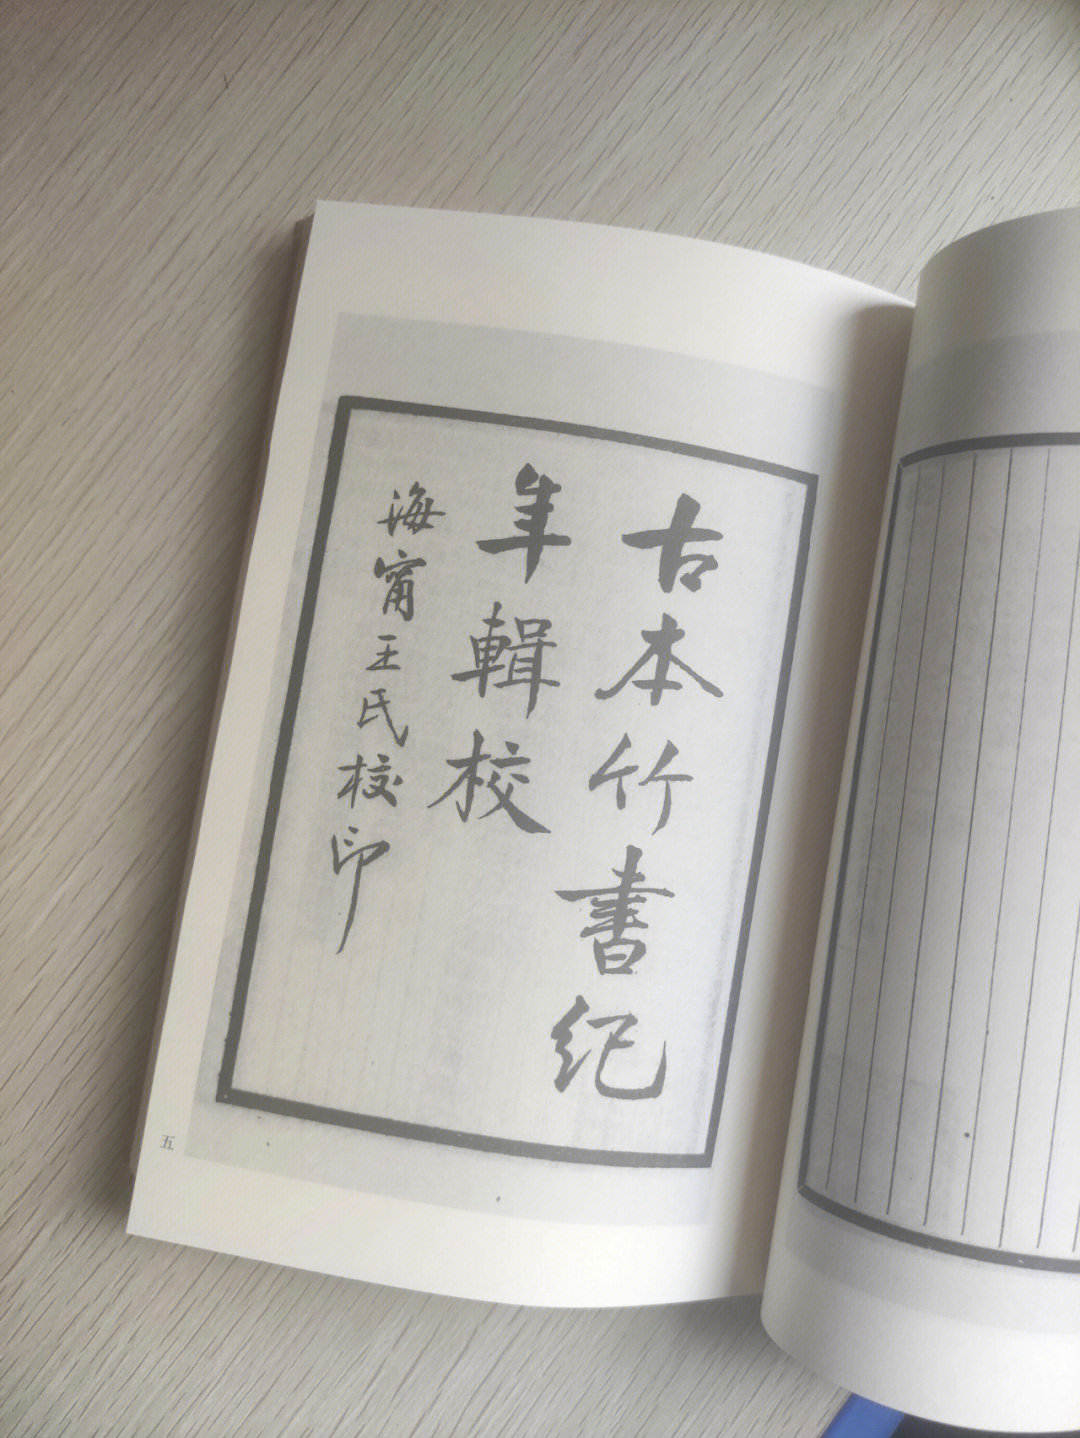 古本竹書紀
年輯校
海甯王氏校印
五